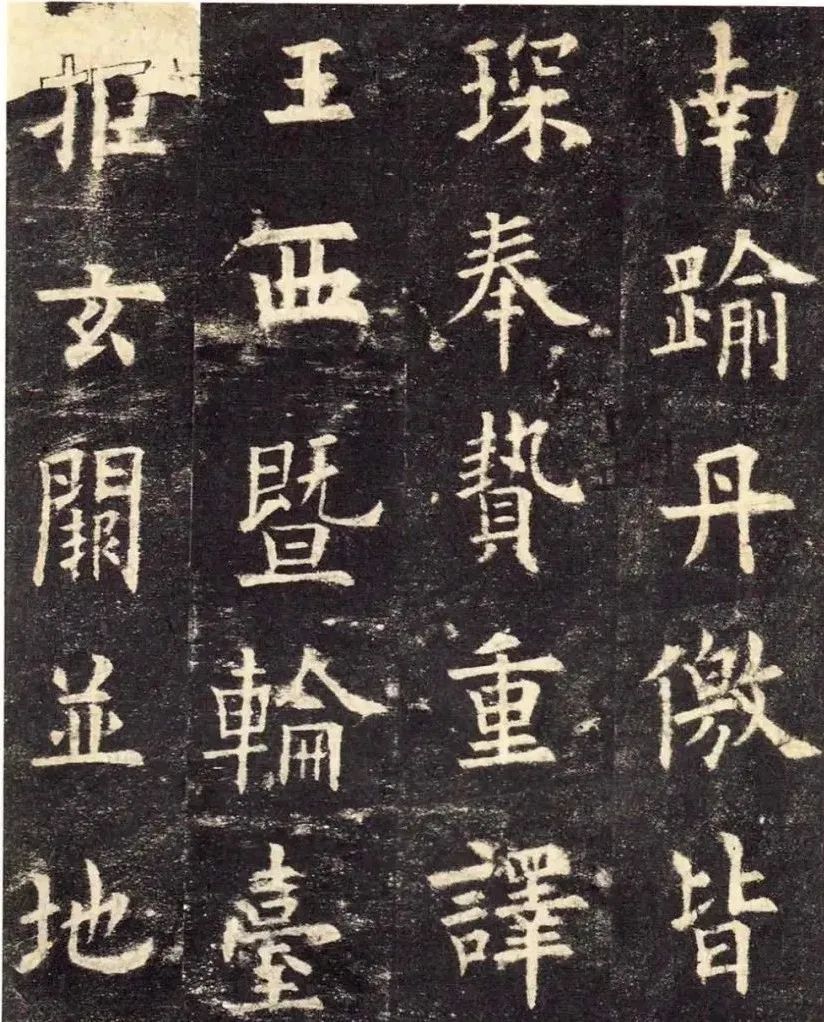 南踰丹徼皆
琛奉贄重譯
王西曁輪臺
拒玄闕並地